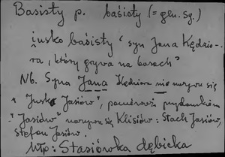 Basisty p. basisty (= głu. Sg.)
iusko basisty "syn Jana Kędzio-
ra, który grywa na basach"
Nb. Syna Jana nie nazywa się
"Jusko Jasiów", ponieważ przydomkiem
"Jasiów" nazywa się Klisiów: Stach Jasiów,
Stefan Jasiów.
Wp: Stasiówka dębicka